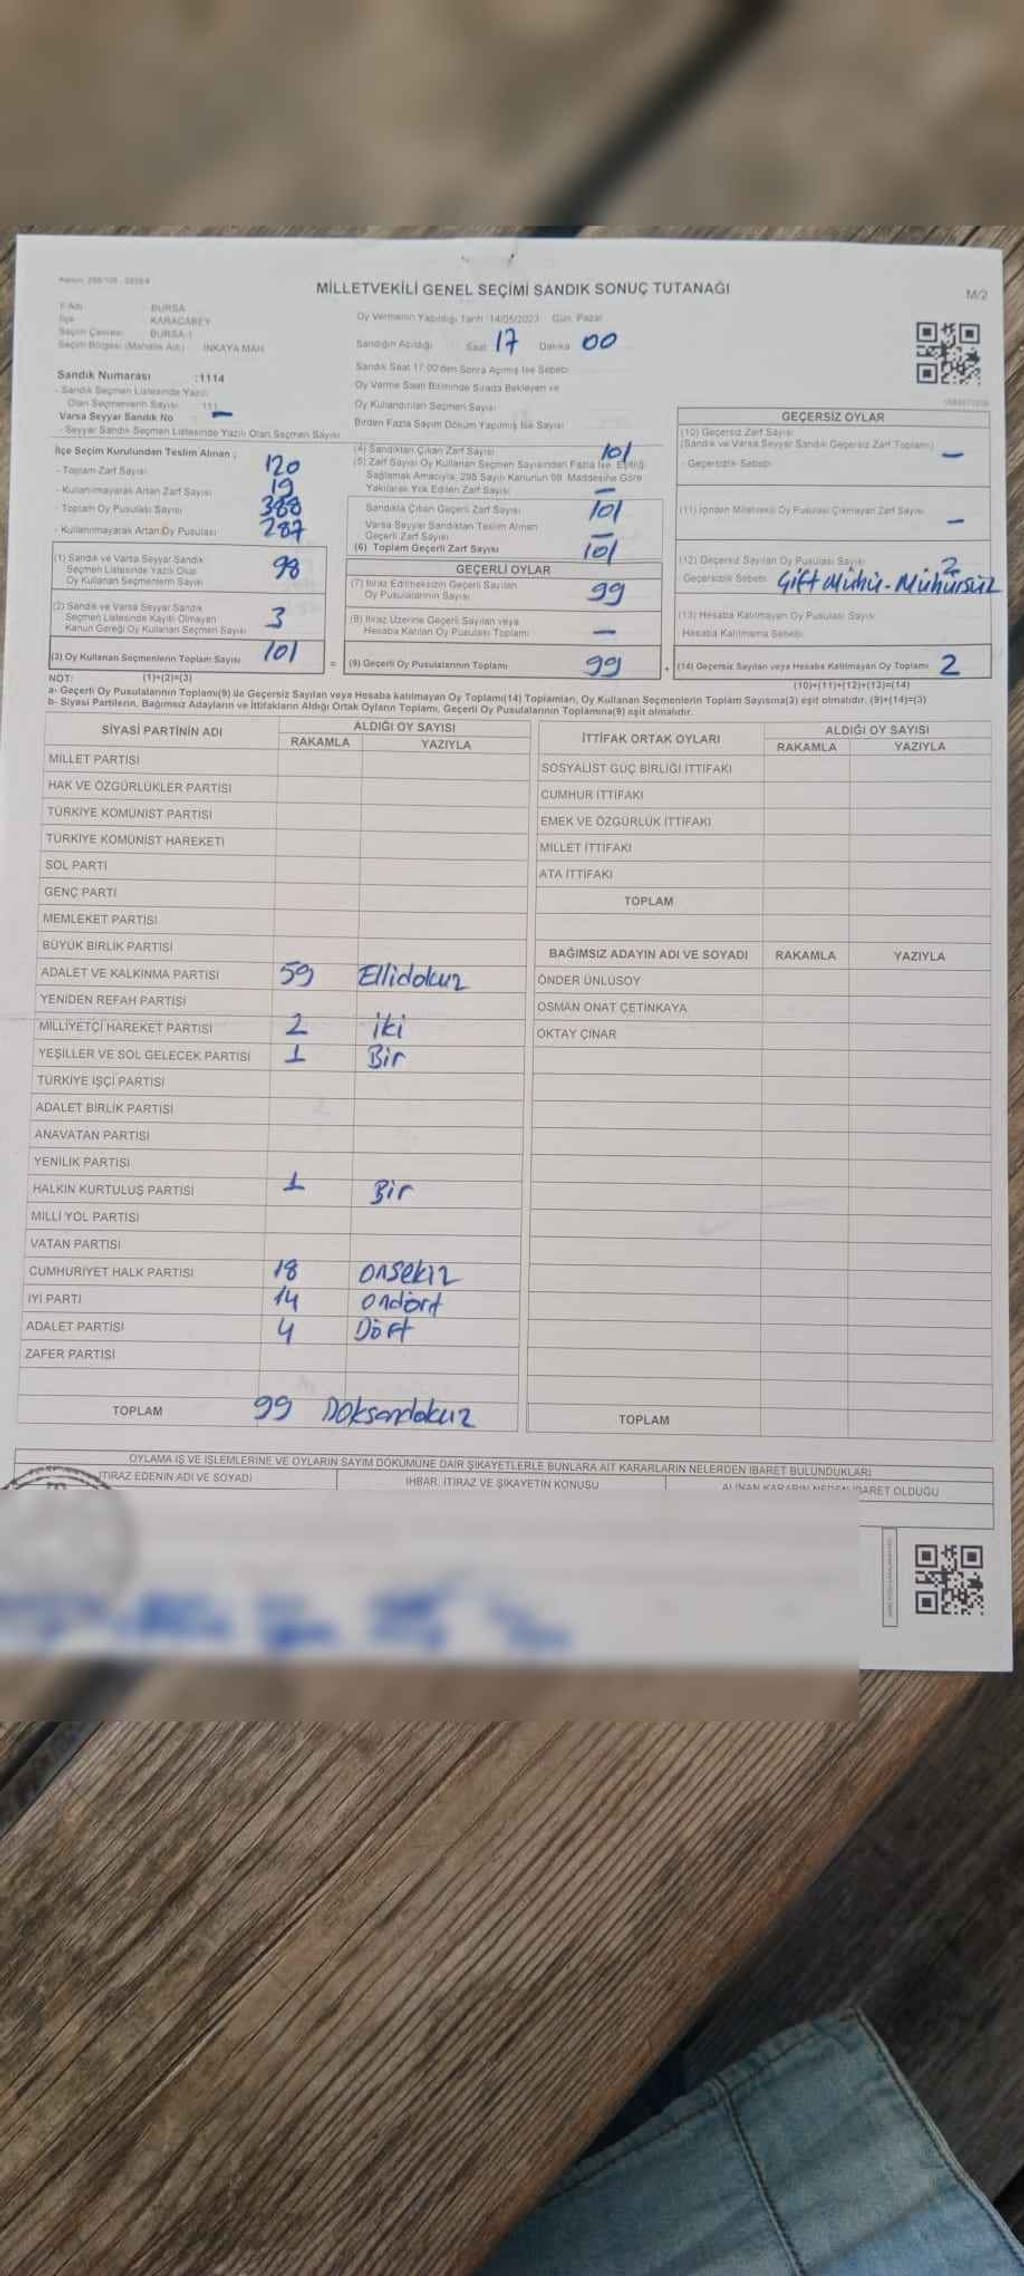 MİLLETVEKİLİ GENEL SEÇİMİ SANDIK SONUÇ TUTANAĞI
M/2
İl Adı : BURSA
İlçe : KARACABEY
Seçim Çevresi : BURSA-1
Seçim Bölgesi (Mahalle Adı) : İNKAYA MAH
Oy Vermenin Yapıldığı Tarih :14/05/2023 Gün: Pazar
Sandığın Açıldığı Saat 17 Dakika 00
Sandık Saat 17:00'den Sonra Açılmış İse Sebebi
Oy Verme Saati Bitiminde Sırada Bekleyen ve
Oy Kullandırılan Seçmen Sayısı
Birden Fazla Sayım Döküm Yapılmış İse Sayısı
Sandık Numarası :1114
- Sandık Seçmen Listesinde Yazılı
Olan Seçmenlerin Sayısı 111
Varsa Seyyar Sandık No —
- Seyyar Sandık Seçmen Listesinde Yazılı Olan Seçmen Sayısı
İlçe Seçim Kurulundan Teslim Alınan ;
- Toplam Zarf Sayısı 120
- Kullanılmayarak Artan Zarf Sayısı 19
- Toplam Oy Pusulası Sayısı 388
- Kullanılmayarak Artan Oy Pusulası 287
(1) Sandık ve Varsa Seyyar Sandık
Seçmen Listesinde Yazılı Olup
Oy Kullanan Seçmenlerin Sayısı 98
(2) Sandık ve Varsa Seyyar Sandık
Seçmen Listesinde Kayıtlı Olmayan
Kanun Gereği Oy Kullanan Seçmen Sayısı 3
(3) Oy Kullanan Seçmenlerin Toplam Sayısı 101
(4) Sandıktan Çıkan Zarf Sayısı 101
(5) Zarf Sayısı Oy Kullanan Seçmen Sayısından Fazla İse, Eşitliği
Sağlamak Amacıyla, 298 Sayılı Kanunun 98. Maddesine Göre
Yakılarak Yok Edilen Zarf Sayısı —
Sandıkta Çıkan Geçerli Zarf Sayısı 101
Varsa Seyyar Sandıktan Teslim Alınan
Geçerli Zarf Sayısı —
(6) Toplam Geçerli Zarf Sayısı 101
GEÇERLİ OYLAR
(7) İtiraz Edilmeksizin Geçerli Sayılan
Oy Pusulalarının Sayısı 99
(8) İtiraz Üzerine Geçerli Sayılan veya
Hesaba Katılan Oy Pusulası Toplamı —
= (9) Geçerli Oy Pusulalarının Toplamı 99
GEÇERSİZ OYLAR
(10) Geçersiz Zarf Sayısı
(Sandık ve Varsa Seyyar Sandık Geçersiz Zarf Toplamı) —
Geçersizlik Sebebi
(11) İçinden Milletvekili Oy Pusulası Çıkmayan Zarf Sayısı —
(12) Geçersiz Sayılan Oy Pusulası Sayısı 2
Geçersizlik Sebebi Çift Mühür - Mühürsüz
(13) Hesaba Katılmayan Oy Pusulası Sayısı
Hesaba Katılmama Sebebi
+ (14) Geçersiz Sayılan veya Hesaba Katılmayan Oy Toplamı 2
NOT: (1)+(2)=(3)
(10)+(11)+(12)+(13)=(14)
a- Geçerli Oy Pusulalarının Toplamı(9) ile Geçersiz Sayılan veya Hesaba katılmayan Oy Toplamı(14) Toplamları, Oy Kullanan Seçmenlerin Toplam Sayısına(3) eşit olmalıdır. (9)+(14)=(3)
b- Siyasi Partilerin, Bağımsız Adayların ve İttifakların Aldığı Ortak Oyların Toplamı, Geçerli Oy Pusulalarının Toplamına(9) eşit olmalıdır.
SİYASİ PARTİNİN ADI ALDIĞI OY SAYISI
RAKAMLA YAZIYLA
MİLLET PARTİSİ
HAK VE ÖZGÜRLÜKLER PARTİSİ
TÜRKİYE KOMÜNİST PARTİSİ
TÜRKİYE KOMÜNİST HAREKETİ
SOL PARTİ
GENÇ PARTİ
MEMLEKET PARTİSİ
BÜYÜK BİRLİK PARTİSİ
ADALET VE KALKINMA PARTİSİ 59 Ellidokuz
YENİDEN REFAH PARTİSİ
MİLLİYETÇİ HAREKET PARTİSİ 2 iki
YEŞİLLER VE SOL GELECEK PARTİSİ 1 Bir
TÜRKİYE İŞÇİ PARTİSİ
ADALET BİRLİK PARTİSİ
ANAVATAN PARTİSİ
YENİLİK PARTİSİ
HALKIN KURTULUŞ PARTİSİ 1 Bir
MİLLİ YOL PARTİSİ
VATAN PARTİSİ
CUMHURİYET HALK PARTİSİ 18 onsekiz
İYİ PARTİ 14 ondört
ADALET PARTİSİ 4 Dört
ZAFER PARTİSİ
TOPLAM 99 Doksandokuz
İTTİFAK ORTAK OYLARI ALDIĞI OY SAYISI
RAKAMLA YAZIYLA
SOSYALİST GÜÇ BİRLİĞİ İTTİFAKI
CUMHUR İTTİFAKI
EMEK VE ÖZGÜRLÜK İTTİFAKI
MİLLET İTTİFAKI
ATA İTTİFAKI
TOPLAM
BAĞIMSIZ ADAYIN ADI VE SOYADI RAKAMLA YAZIYLA
ÖNDER ÜNLÜSOY
OSMAN ONAT ÇETİNKAYA
OKTAY ÇINAR
TOPLAM
OYLAMA İŞ VE İŞLEMLERİNE VE OYLARIN SAYIM DÖKÜMÜNE DAİR ŞİKAYETLERLE BUNLARA AİT KARARLARIN NELERDEN İBARET BULUNDUKLARI
İTİRAZ EDENİN ADI VE SOYADI İHBAR, İTİRAZ VE ŞİKAYETİN KONUSU ALINAN KARARIN NEDEN İBARET OLDUĞU